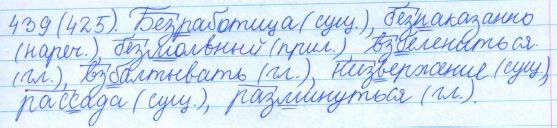 439 (425). Безработица (сущ.), безнаказанно
(нареч.) безмолвный (прил.) взбелениться
(гл.), взбалтывать (гл.), низвержение (сущ.),
рассада (сущ.), разминуться (гл.).